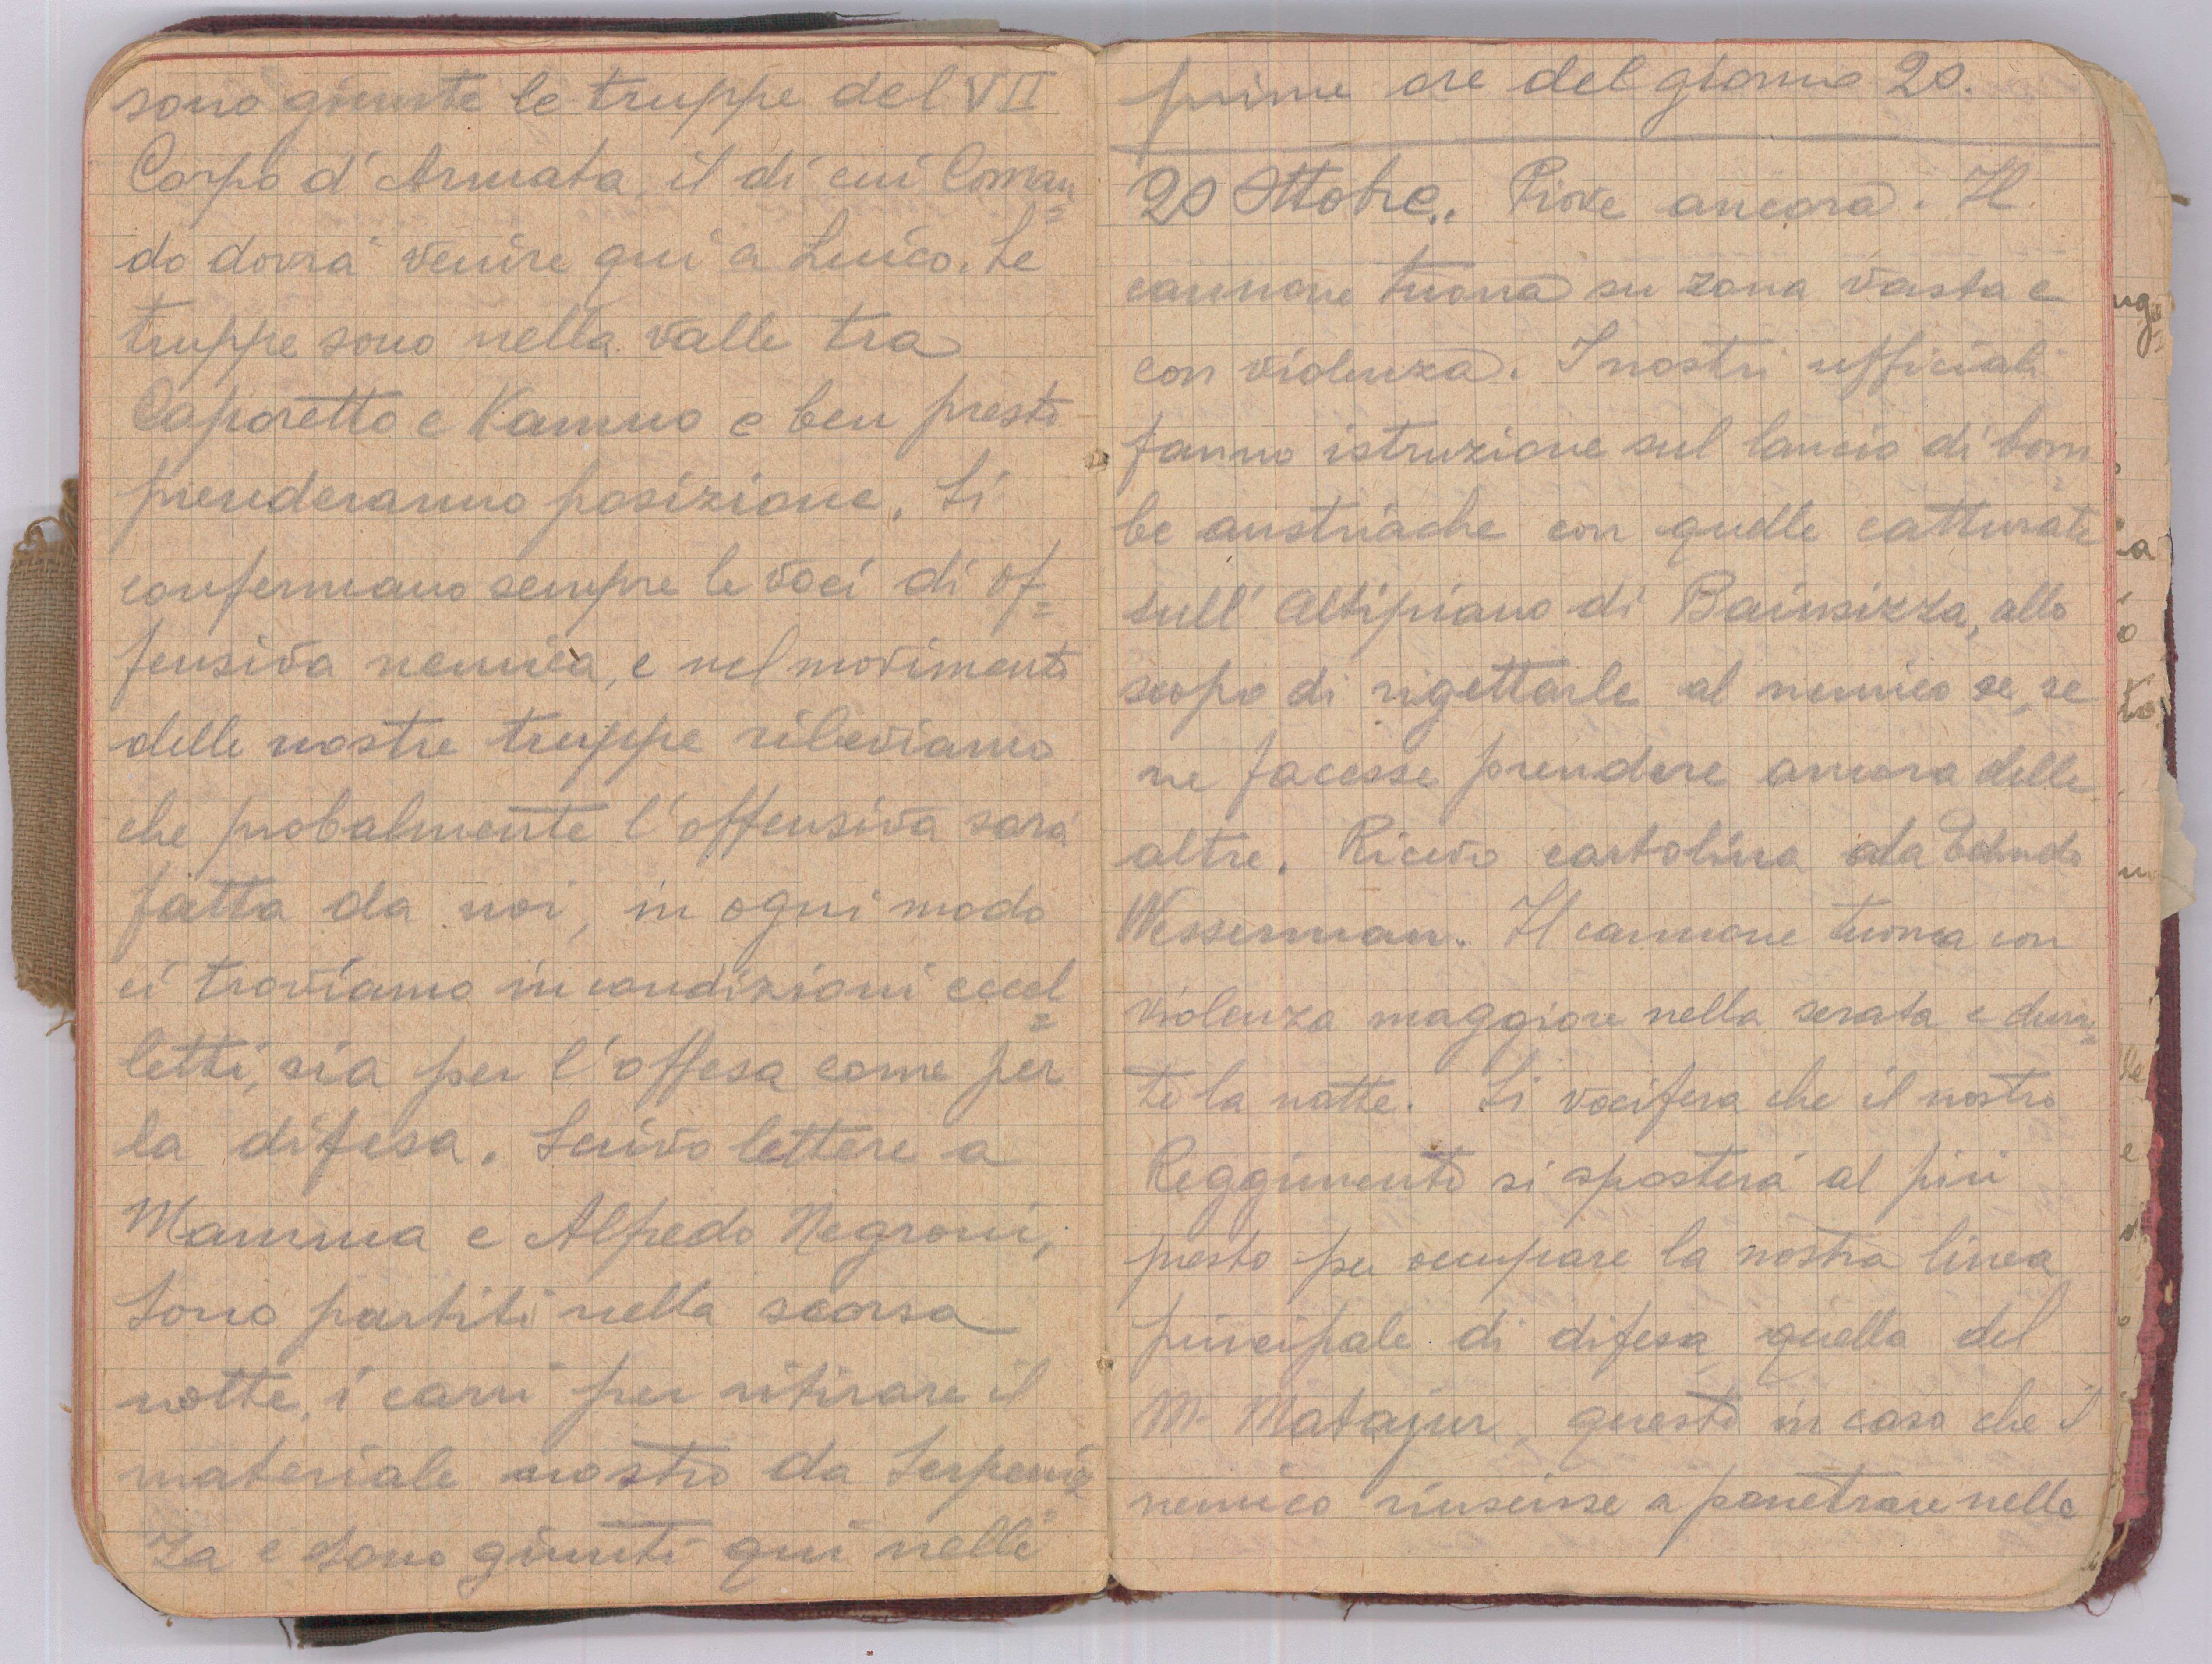 sono giunte le truppe del VII
Corpo d'Armata, il di cui Coman=
do dovrà venire qui a Luico. Le
truppe sono nella valle tra
Caporetto e Kamno e ben presto
prenderanno posizione. Si
confermano sempre le voci di of=
fensiva nemica, e nel movimento
delle nostre truppe rileviamo
che probalmente l'offensiva sarà
fatta da noi, in ogni modo
ci troviamo in condizioni eccel=
letti, sia per l'offesa come per
la difesa. Scrivo lettere a
Mamma e Alfredo Negroni,
Sono partiti nella scorsa
notte, i carri per ritirare il
materiale nostro da Serpeniz=
za e sono giunti qui nelle
prime ore del giorno 20.
20 Ottobre.. Piove ancora. Il
cannone tuona su zona vasta e
con violenza. I nostri ufficiali
fanno istruzione sul lancio di bom
be austriache con quelle catturate
sull'Altipiano di Bainsizza, allo
scopo di rigettarle al nemico se, se
ne facesse prendere ancora delle
altre. Ricevo cartolina da
Wesserman. Il cannone tuona con
violenza maggiore nella serata e duran=
te la notte. Si vocifera che il nostro
Reggimento si sposterà al più
presto per occupare la nostra linea
principale di difesa, quella del
M. Matajur, questo in caso che il
nemico riuscisse a penetrare nella